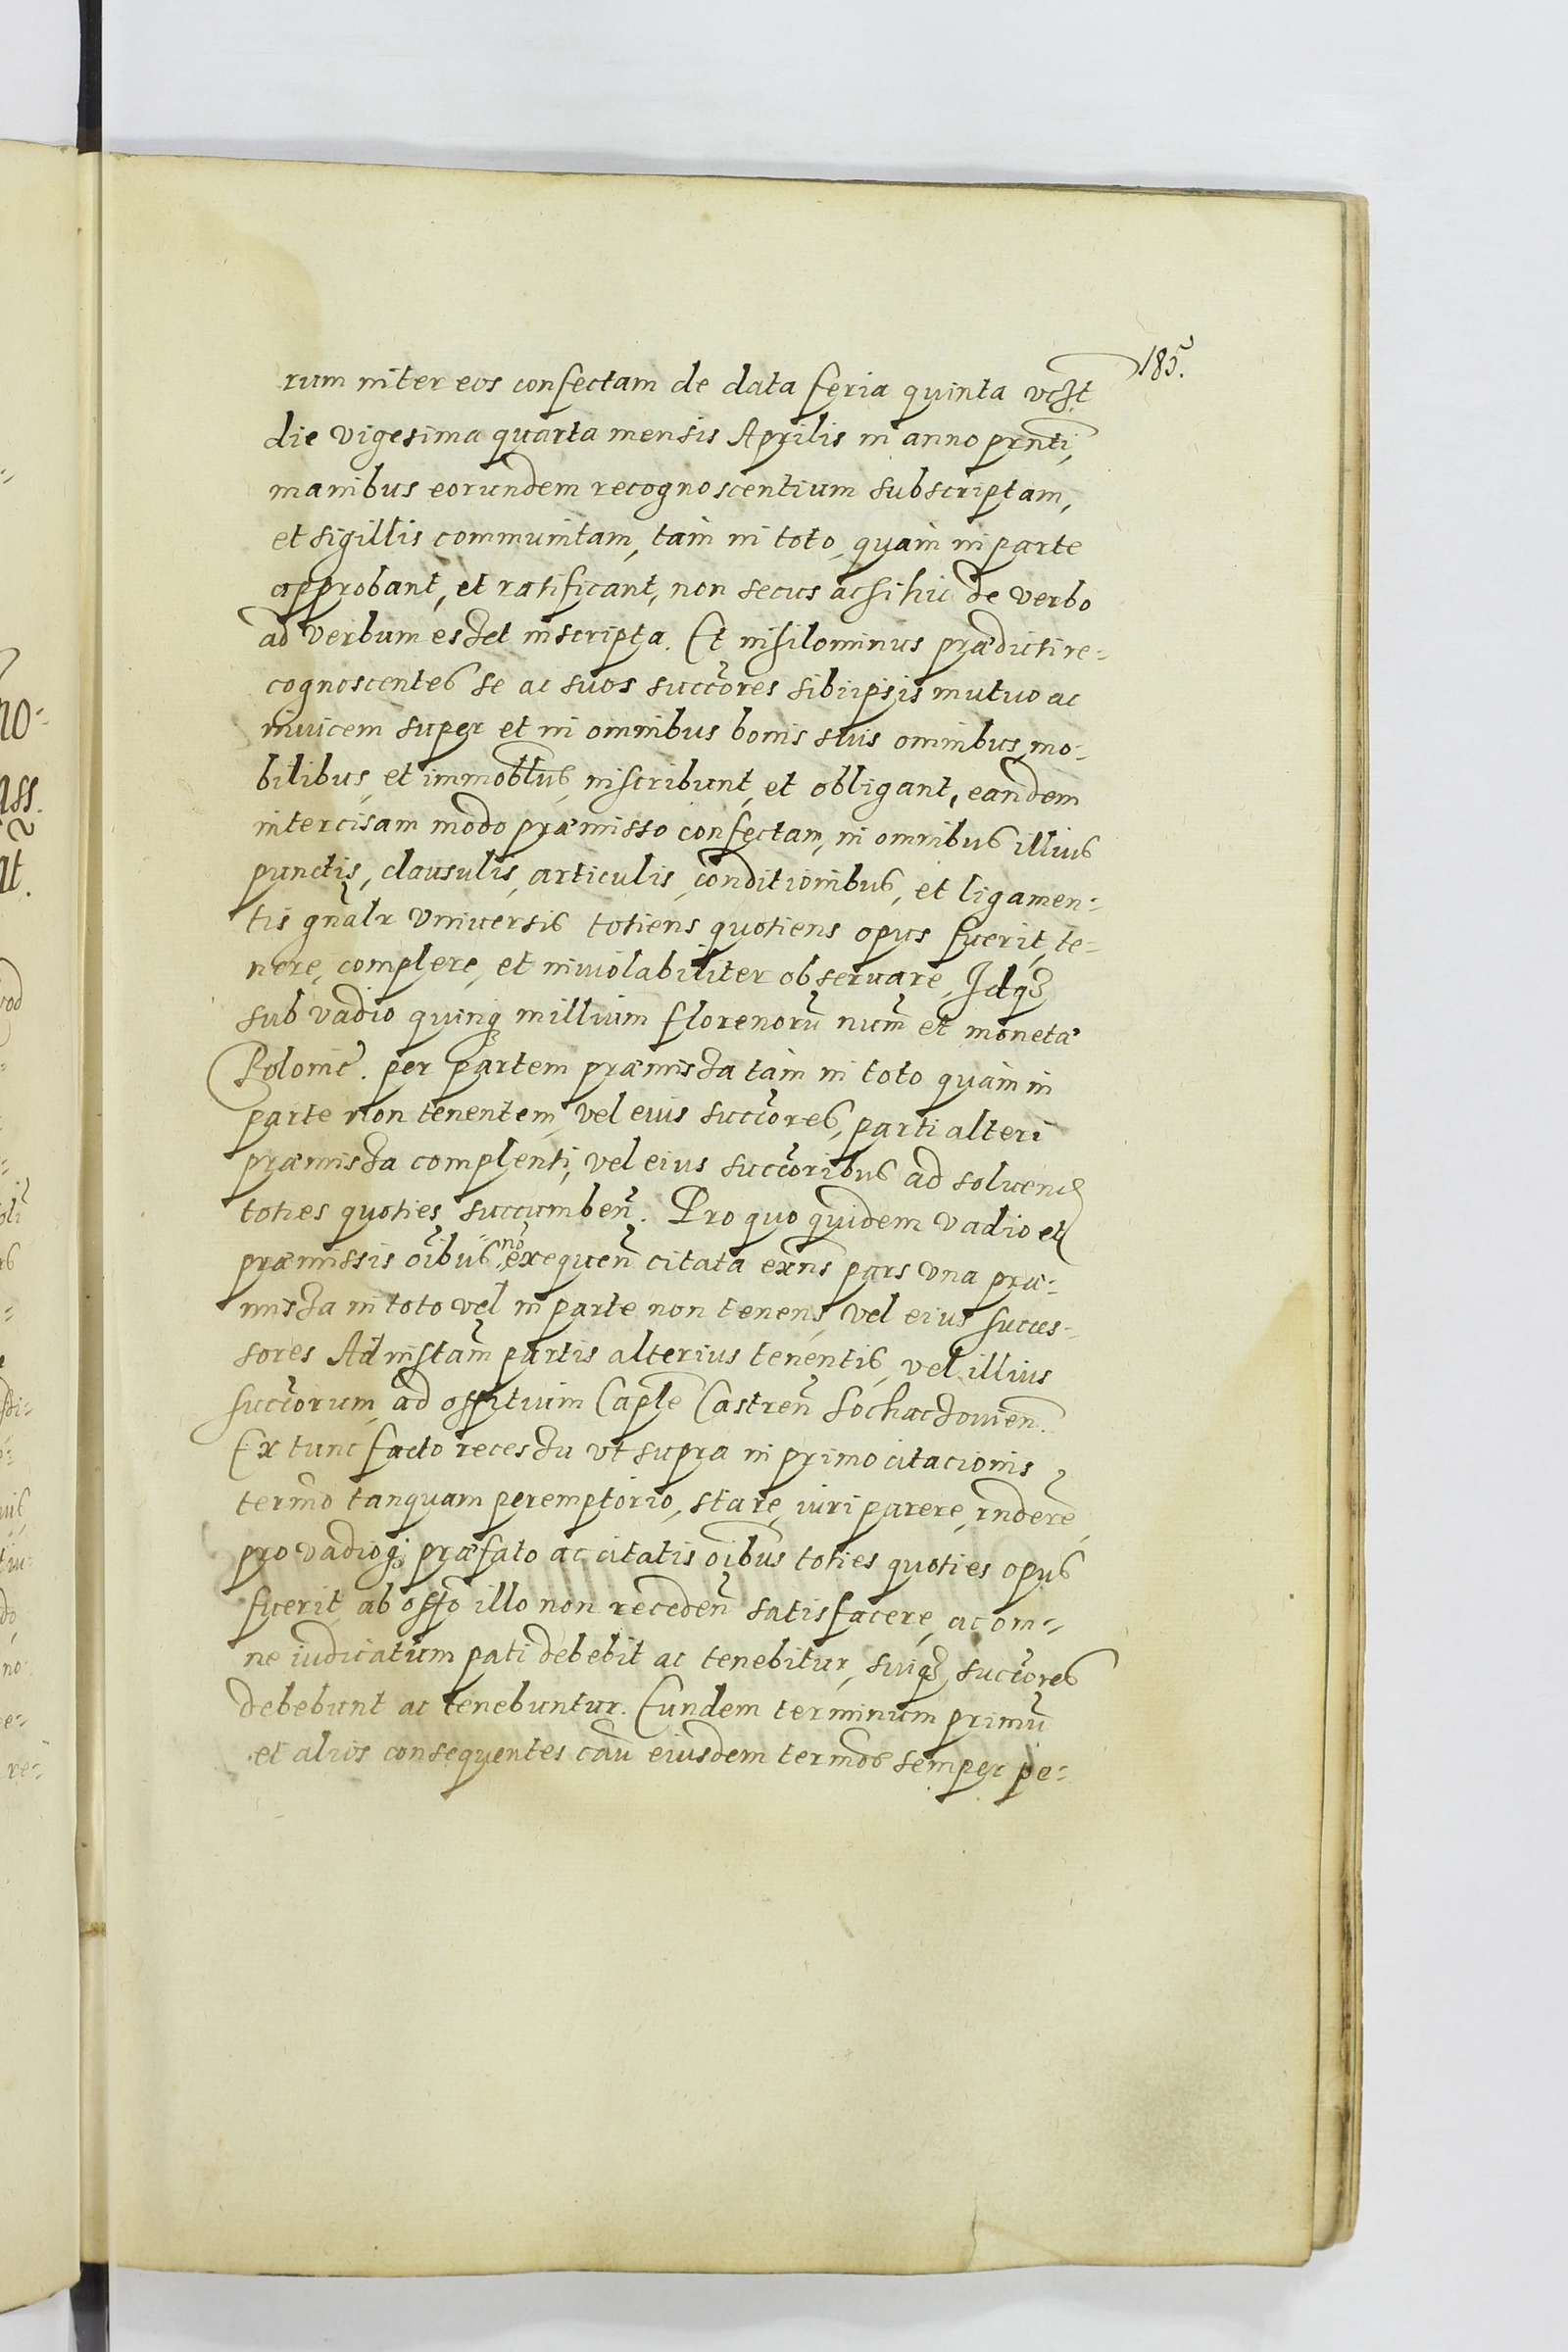 185.
rum inter eos confectam de data feria quinta
die vigesima quarta mensis Aprilis in anno prnti,
manibus eorundem recognoscentium subscriptam,
et sigillis communitam, tam in toto, quam in parte
approbant, et ratificant, non secus acsi hic de verbo
ad verbum esset inscripta. Et nihilominus prædicti re=
cognoscentes se ac suos succores sibiipsis mutuo ac
inuicem super et in omnibus bonis suis omnibus, mo=
bilibus, et immobilibus, inscribunt, et obligant, eandem
intercisam modo præmisso confectam, in omnibus illius
punctis, clausulis, articulis, conditionibus, et ligamen=
tis gnalr vniuersis totiens quotiens opus fuerit, te=
nere, complere, et inuiolabiliter obseruare, Idq3
sub vadio quinq3 millium florenorū num et monetæ
Polonic. per partem præmissa tam in toto quam in
parte non tenentem, vel eius succores, parti alteri
præmissa complenti, vel eius succoribus ad soluend
toties quoties succumben. Pro quo quidem vadio et
præmissis oibus no exequen citata exns pars vna præ=
missa in toto vel in parte non tenens, vel eius succes=
sores Ad instam partis alterius tenentis, vel illius
succorum, ad officium Caple Castren Sochaczouien.
Ex tunc facto recessu vt supra in primo citacionis
termo tanquam peremptorio, stare, iuri parere, rndere,
pro vadioq3 præfato ac citatis oibus toties quoties opus
fuerit, ab offo illo non receden satisfacere, ac om=
ne iudicatum pati debebit ac tenebitur, suiq3 succores
debebunt ac tenebuntur. Eundem terminum primū
et alios consequentes cau eiusdem termos semper pe=